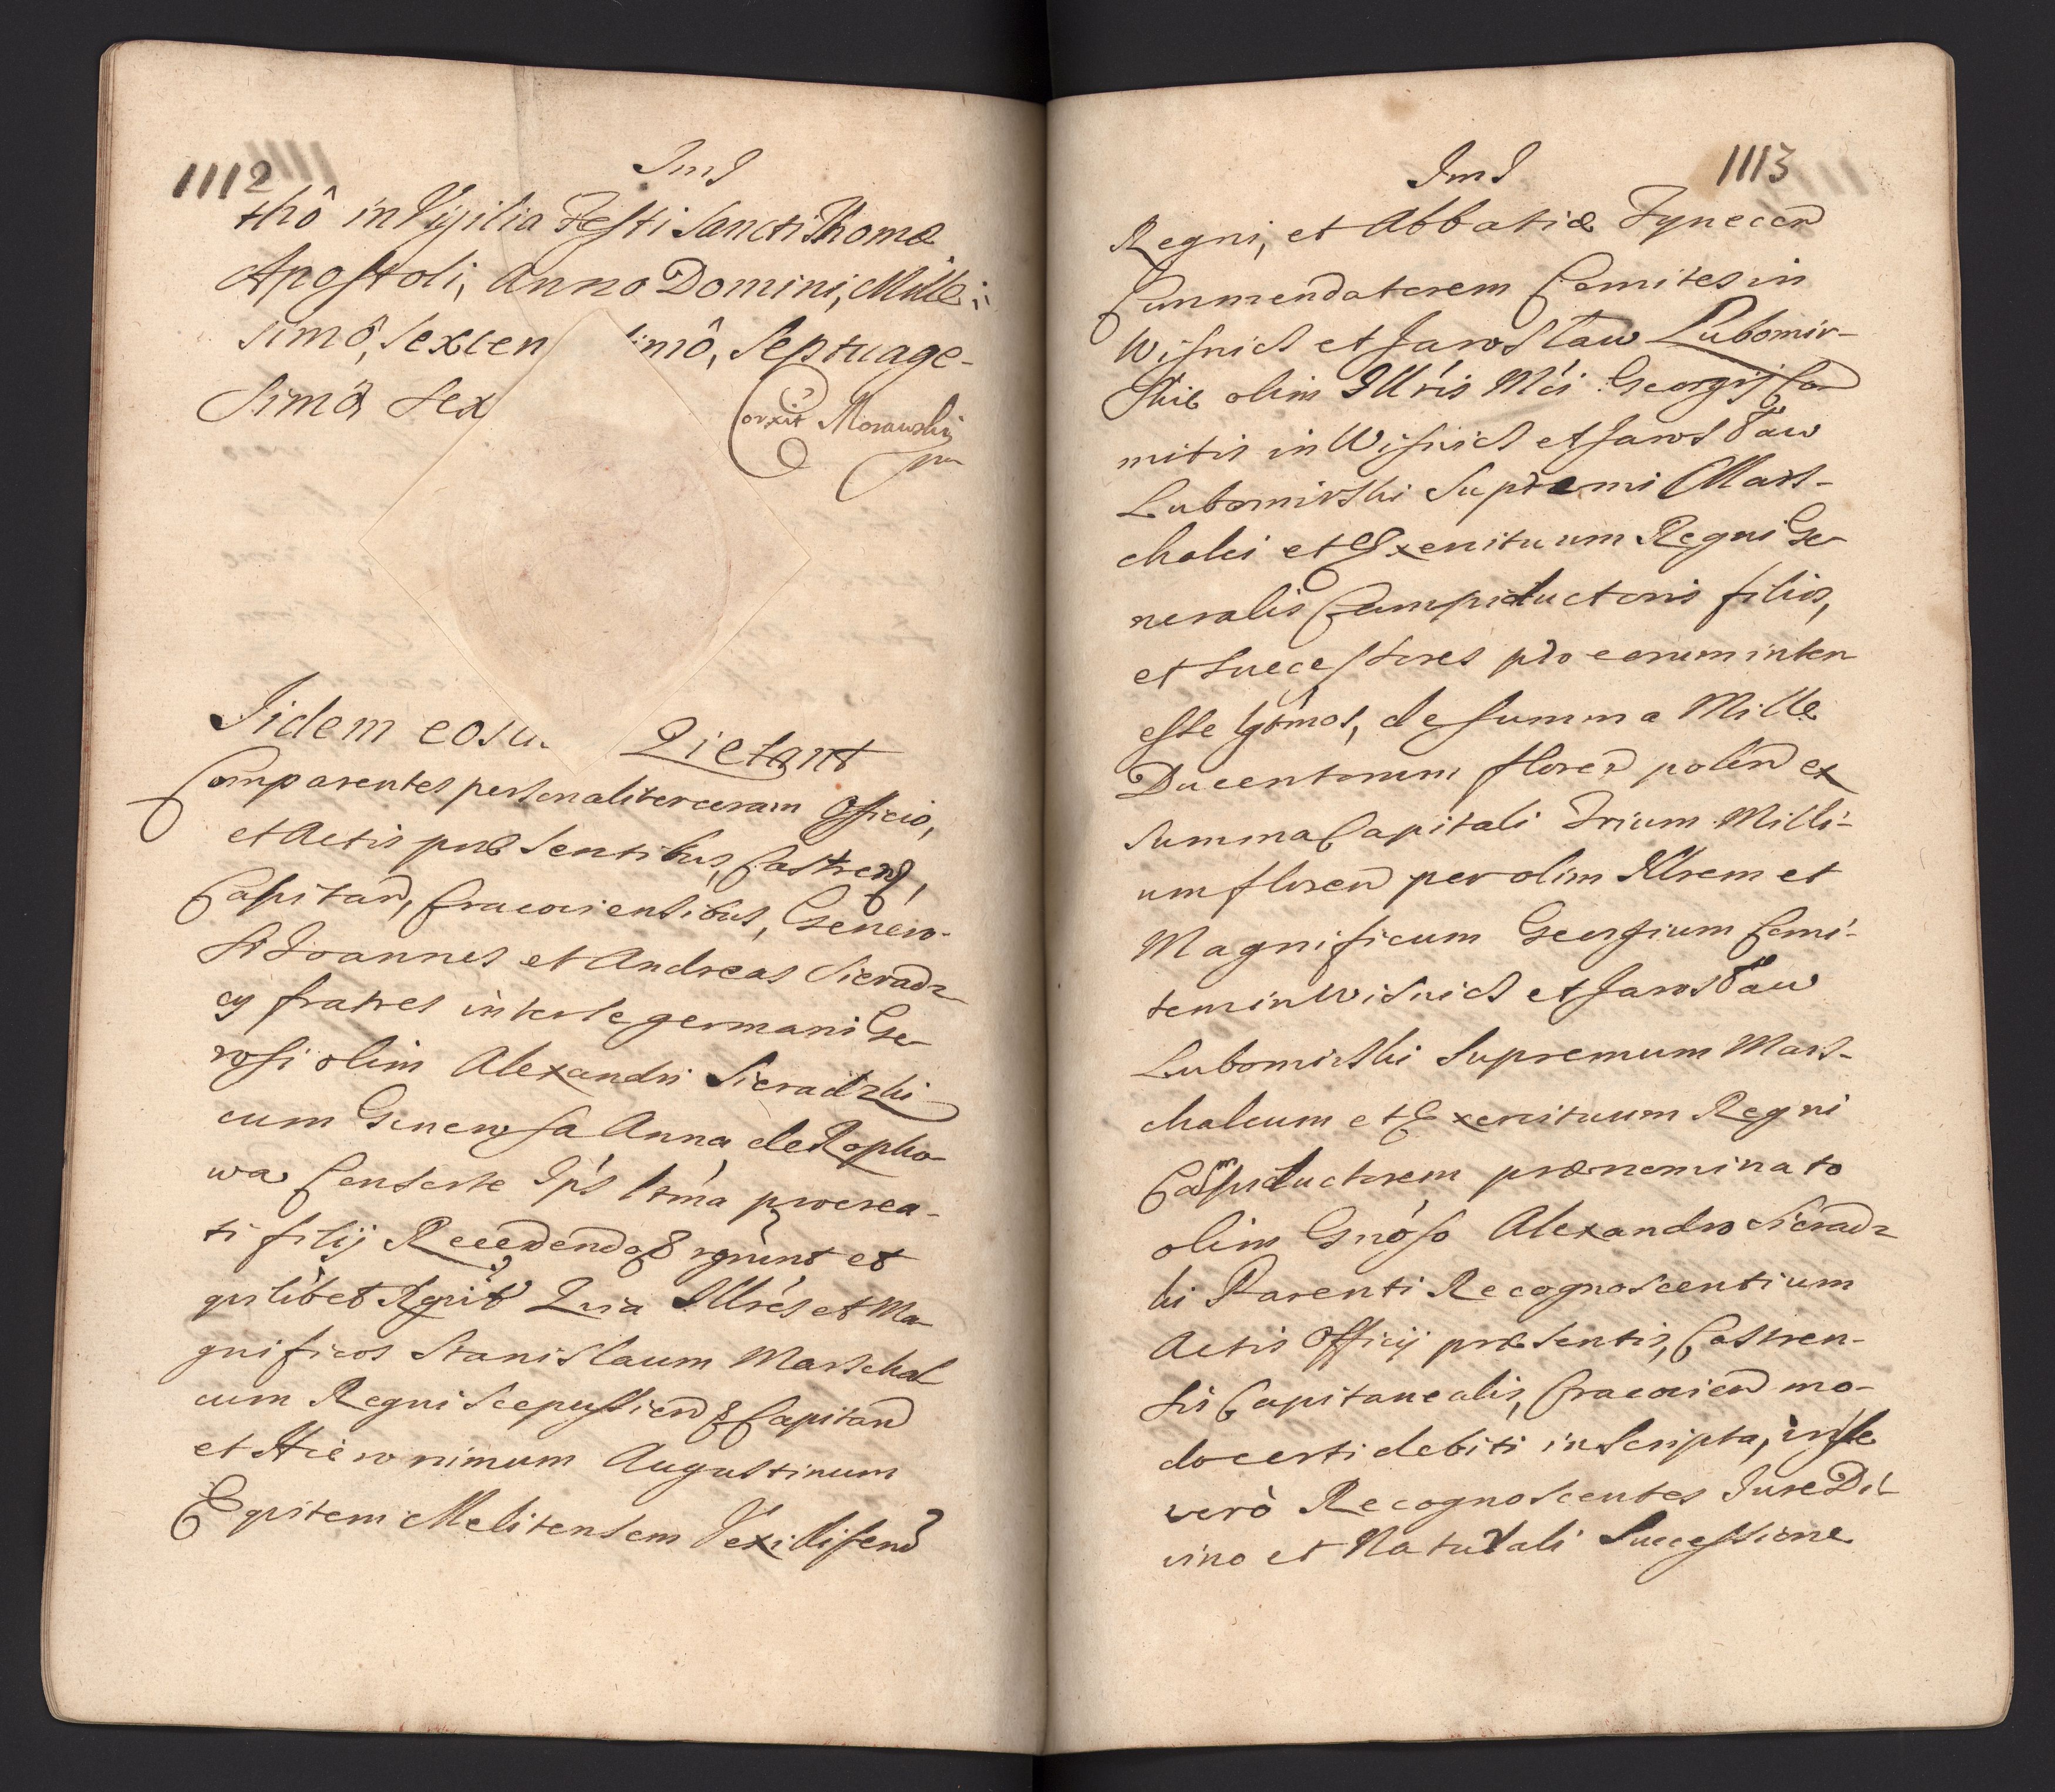 1112
Imd
thô in Vigilia Festi Sancti Thomæ
Apostoli, Anno Domini, Mille-
simô, Sexcen simô, Septuage-
simô Sex
Corxit Morawski
Iidem eosd Qietant
Comparentes personaliter coram Officio,
et Actis præsentibus, Castren,
Capitan, Cracoviensibus, Genero-
si Joannes et Andreas Sieradz-
cy fratres inter se germani Ge-
rosi olim Alexandri Sieradzki
cum Generosa Anna de Ropho-
wa Consorte Ips ltma procrea-
ti filij Recedendo & rgnunt et
quilibet Rgnit Quia Illres et Ma-
gnificos Stanislaum Marschal
cum Regni Scepussien & Capitan
et Hieronimum Augustinum
Equitem Melitensem Vexilliferu
Imd
1113
Regni, et Abbatiæ Tynecen
Commendatorem Comites in
Wisnicz et Jarosław Lubomir-
skie olim Illris Mci Georgij Co-
mitis in Wisnicz et Jarosław
Lubomirski Supremi Mars-
chalci et Exercituum Regni Ge-
neralis Campiductoris filios,
et Successores pro eorum inter
esse lgtmos, de summa Mille
Ducentorum floren polin ex
summa Capitali Trium Milli-
um floren per olim Illrem et
Magnificum Georgium Comi-
tem in Wisnicz et Jarosław
Lubomirski Supremum Mars-
chalcum et Exercituum Regni
Campiductorem prænominato
olim Gnoso Alexandro Sieradz-
ki Parenti Recognoscentium
Actis Officij præsentis, Castren-
sis Capitanealis, Cracovien mo-
do certi debiti inscripta, in se
verò Recognoscentes Jure Di-
vino et Naturali Successione